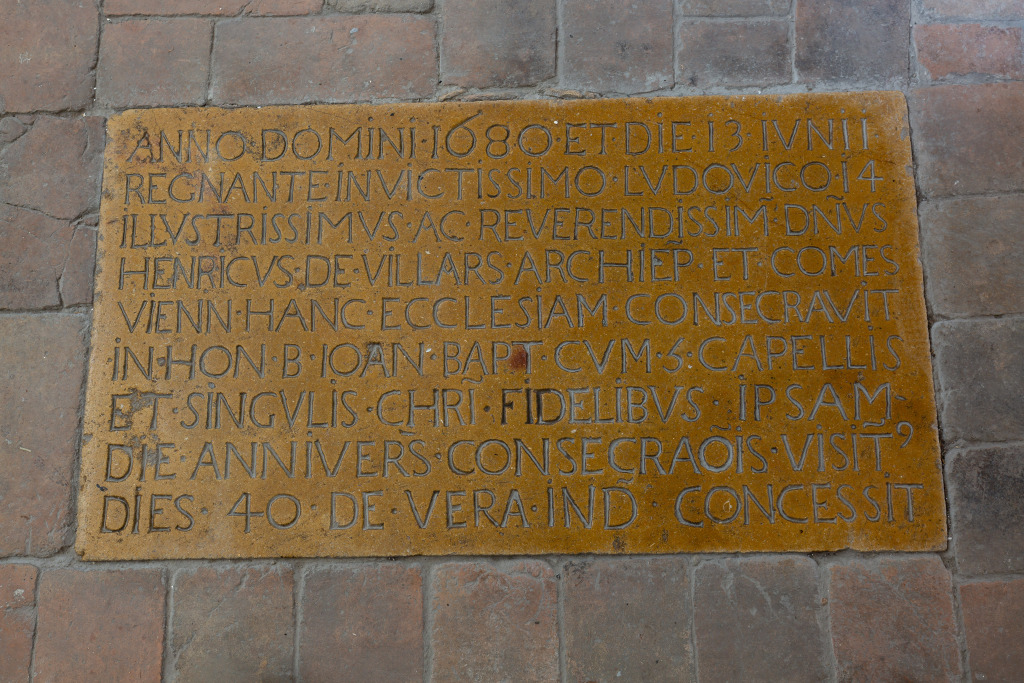 ANNO·DOMINI·1680·ET·DIE·13·IVNII
REGNANTE·INVICTISSIMO·LVDOVICO·14
ILLVSTRISSIMVS·AC·REVERENDISSIM̃·DÑVS
HENRICVS·DE·VILLARS·ARCHIEP̃·ET·COMES
VIENN·HANC·ECCLESIAM·CONSECRAVIT
IN·HON·B·IOAN·BAPT·CVM·5·CAPELLIS
ET·SINGVLIS·CHRĨ·FIDELIBVS·IPSAM-
DIE·ANNIVERS̃·CONSECRAÕIS·VISIT̃ꝰ
DIES·40·DE·VERA·IND̃·CONCESSIT